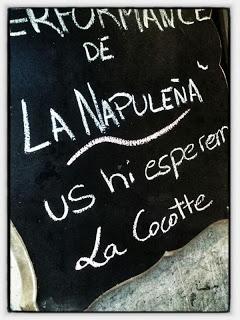 ERFORMANCE
DE
LA NAPULEÑA
us hi esperem
La Cocotte